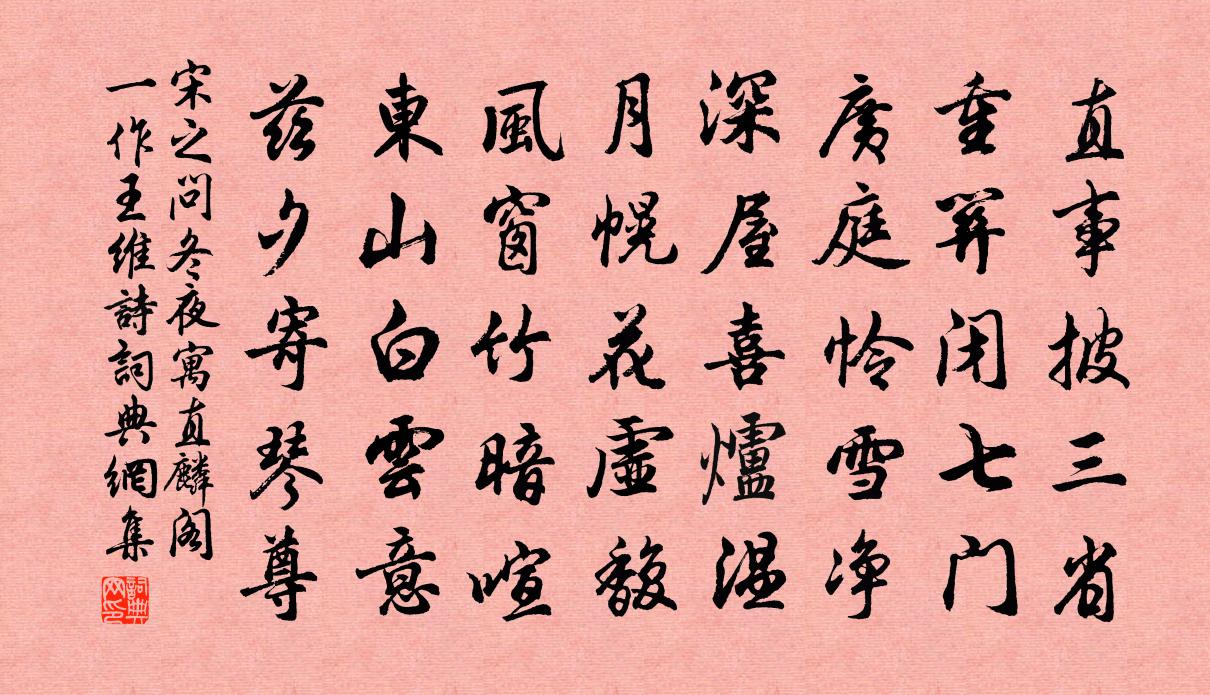 直事披三省
重関闭七门
廣庭怜雪净
深屋喜爐温
月幌花虚馥
風窗竹暗喧
東山白雲意
兹夕寄琴尊
宋之问冬夜寓直麟阁
一作王维詩詞典網集
詞典
网印